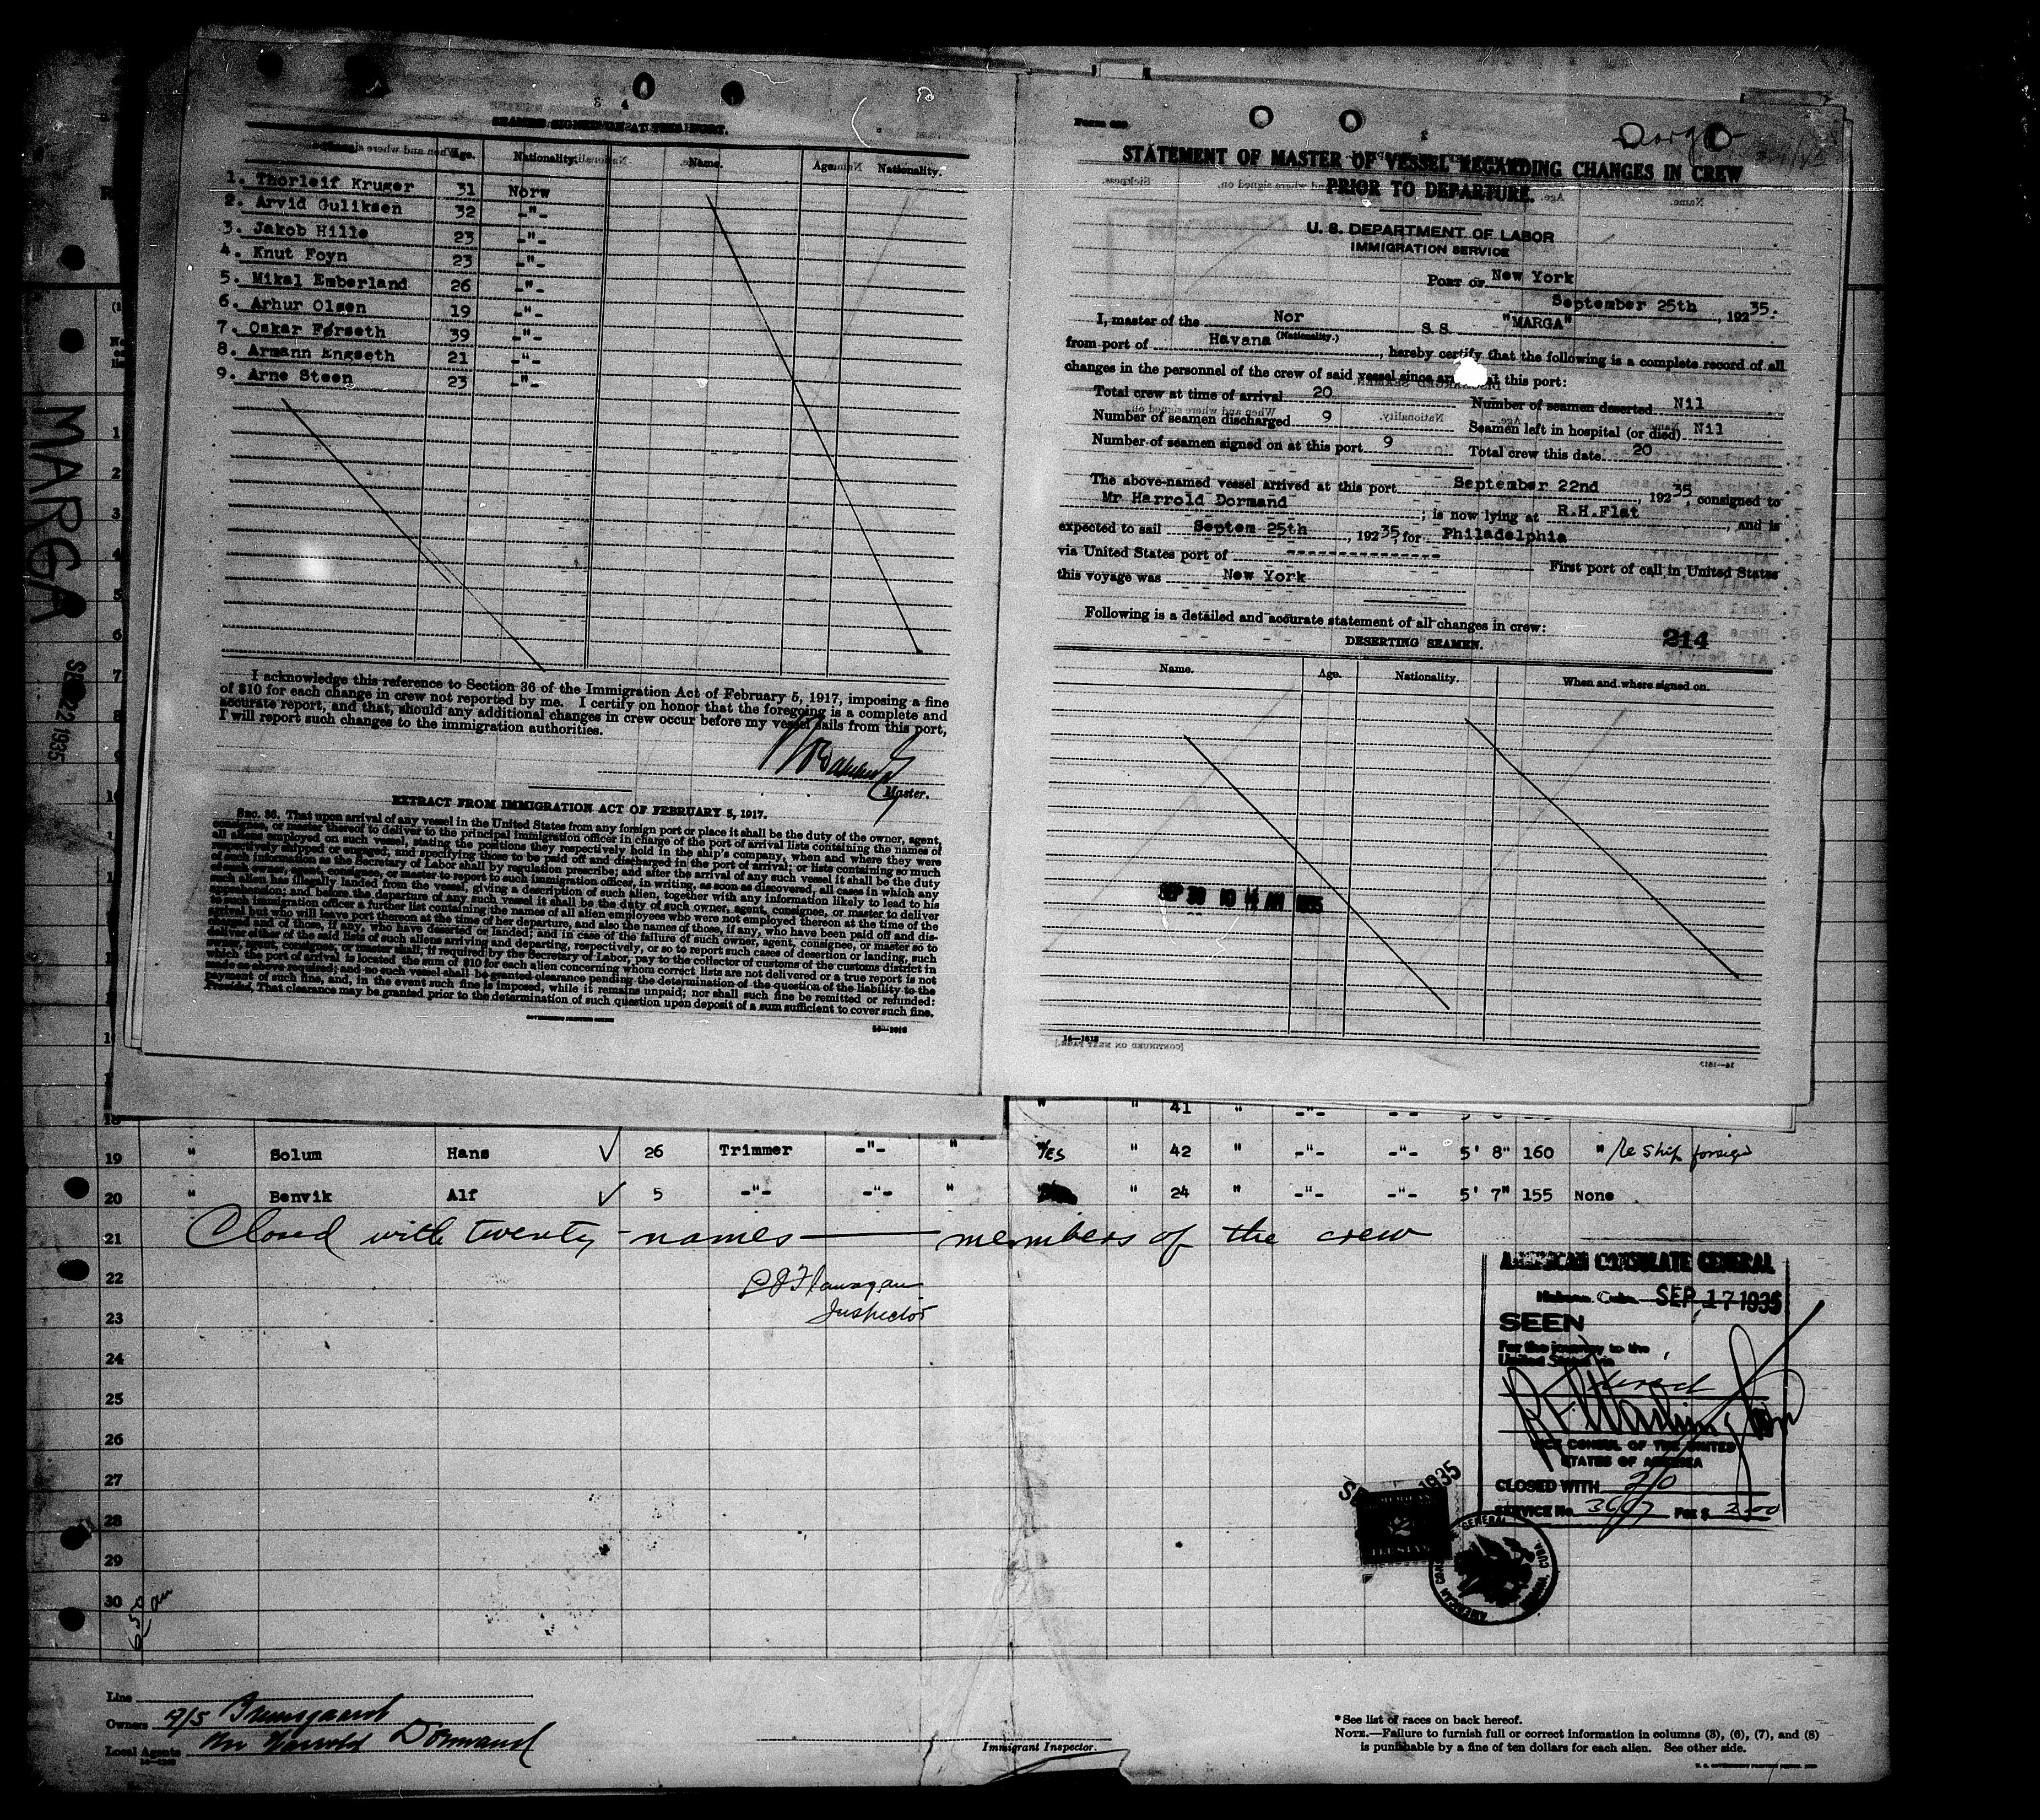 SEAMEN SIGNED ON AT THIS PORT.
Name. Age. Nationality. Name. Age. Nationality.
1. Thorleif Kruger 31 Norw
2. Arvid Guliksen 32 -"-
3. Jakob Hille 23 -"-
4. Knut Foyn 23 -"-
5. Mikal Emberland 26 -"-
6. Arhur Olsen 19 -"-
7. Oskar Førseth 39 -"-
8. Armann Engseth 21 -"-
9. Arne Steen 23 -"-
I acknowledge this reference to Section 36 of the Immigration Act of February 5, 1917, imposing a fine
of $10 for each change in crew not reported by me. I certify on honor that the foregoing is a complete and
accurate report, and that, should any additional changes in crew occur before my vessel sails from this port,
I will report such changes to the immigration authorities.
Master.
EXTRACT FROM IMMIGRATION ACT OF FEBRUARY 5, 1917.
SEC. 36. That upon arrival of any vessel in the United States from any foreign port or place it shall be the duty of the owner, agent,
consignee, or master thereof to deliver to the principal immigration officer in charge of the port of arrival lists containing the names of
all aliens employed on such vessel, stating the positions they respectively hold in the ship's company, when and where they were
respectively shipped or engaged, and specifying those to be paid off and discharged in the port of arrival; or lists containing so much
of such information as the Secretary of Labor shall by regulation prescribe; and after the arrival of any such vessel it shall be the duty
of such owner, agent, consignee, or master to report to such immigration officer, in writing, as soon as discovered, all cases in which any
such alien has illegally landed from the vessel, giving a description of such alien, together with any information likely to lead to his
apprehension; and before the departure of any such vessel it shall be the duty of such owner, agent, consignee, or master to deliver
to such immigration officer a further list containing the names of all alien employees who were not employed thereon at the time of the
arrival but who will leave port thereon at the time of her departure, and also the names of those, if any, who have been paid off and dis-
charged and of those, if any, who have deserted or landed; and in case of the failure of such owner, agent, consignee, or master so to
deliver either of the said lists of such aliens arriving and departing, respectively, or so to report such cases of desertion or landing, such
owner, agent, consignee, or master shall, if required by the Secretary of Labor, pay to the collector of customs of the customs district in
which the port of arrival is located the sum of $10 for each alien concerning whom correct lists are not delivered or a true report is not
made as above required; and no such vessel shall be granted clearance pending the determination of the question of the liability to the
payment of such fine, and, in the event such fine is imposed, while it remains unpaid; nor shall such fine be remitted or refunded:
Provided, That clearance may be granted prior to the determination of such question upon deposit of a sum sufficient to cover such fine.
GOVERNMENT PRINTING OFFICE
STATEMENT OF MASTER OF VESSEL REGARDING CHANGES IN CREW
PRIOR TO DEPARTURE.
U. S. DEPARTMENT OF LABOR
IMMIGRATION SERVICE
PORT OF New York
September 25th, 192 35.
I, master of the Nor S. S. "MARGA"
(Nationality.)
from port of Havana, hereby certify that the following is a complete record of all
changes in the personnel of the crew of said vessel since at this port:
Total crew at time of arrival 20 Number of seamen deserted Nil
Number of seamen discharged 9 Seamen left in hospital (or died) Nil
Number of seamen signed on at this port 9 Total crew this date 20
The above-named vessel arrived at this port September 22nd, 192 35, consigned to
Mr Harrold Dormand; is now lying at R.H.Flat, and is
expected to sail Septem 25th, 192 35, for Philadelphia
via United States port of ---------------- First port of call in United States
this voyage was New York
Following is a detailed and accurate statement of all changes in crew:
214
DESERTING SEAMEN.
Name. Age. Nationality. When and where signed on.
[CONTINUED ON NEXT PAGE.]
MARGA
SEP 22 1935
" " 41 " -"- -"-
19 " Solum Hans 26 Trimmer -"- " YES " 42 " -"- -"- 5' 8" 160 " Re Ship foreign
20 " Benvik Alf 5 -"- -"- " " 24 " -"- -"- 5' 7" 155 None
21 Closed with twenty names members of the crew
22 Flanagan
23 Inspector
24
25
26
27
28
29
30
AMERICAN CONSULATE GENERAL
Habana, Cuba SEP 17 1935
SEEN
For the journey to the
United States via
VICE CONSUL OF THE UNITED
STATES OF AMERICA
CLOSED WITH 20
SERVICE No. Fee $ 2.00
1935
Line
Owners A/S
Local Agents Mr Harrold Dormand
Immigrant Inspector.
*See list of races on back hereof.
NOTE.—Failure to furnish full or correct information in columns (3), (6), (7), and (8)
is punishable by a fine of ten dollars for each alien. See other side.